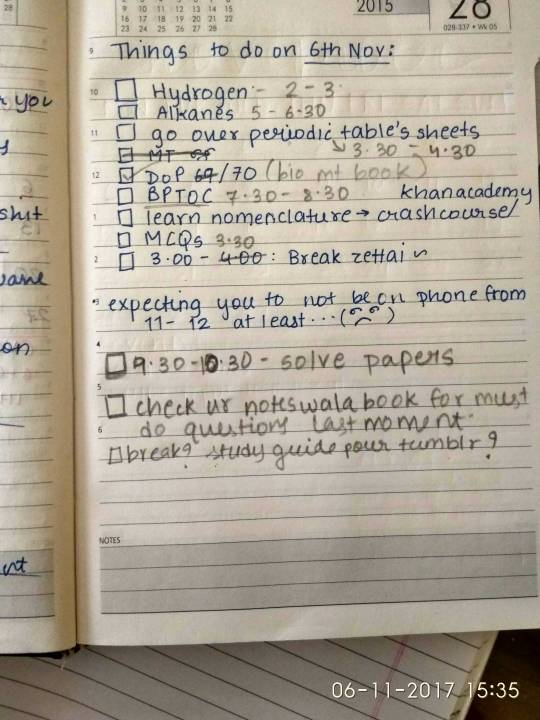 28
9 10 11 12 13 14 15
16 17 18 19 20 21 22
23 24 25 26 27 28
2015
28
028-337 • Wk 05
9 Things to do on 6th Nov:
10 Hydrogen - 2 - 3
Alkanes 5 - 6.30
11 go over periodic table's sheets
↘ 3.30 - 4.30
MT
12 DoP 69/70 (bio mt book)
BPTOC 7.30 - 8.30 khanacademy
1 learn nomenclature → crashcourse/
MCQs 3.30
2 3.00 - 4.00 : Break zettai
3 expecting you to not be on phone from
11 - 12 at least...
4 9.30-10.30 - solve papers
5 check ur noteswala book for must
6 do questions last moment.
break? study guide pour tumblr?
NOTES
you
shit
on
06-11-2017 15:35